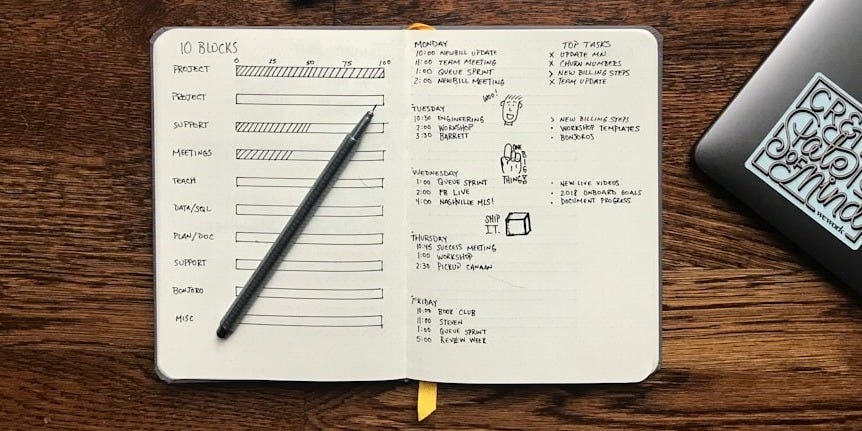 10 BLOCKS
0 25 50 75 100
PROJECT
PROJECT
SUPPORT
MEETINGS
TEACH
DATA/SQL
PLAN/DOC
SUPPORT
BONJORO
MISC
MONDAY
10:00 NEWBILL UPDATE
11:00 TEAM MEETING
1:00 QUEUE SPRINT
2:00 NEWBILL MEETING
TOP TASKS
x UPDATE MN
x CHURN NUMBERS
> NEW BILLING STEPS
x TEAM UPDATE
WOO!
TUESDAY
10:30 ENGINEERING
2:00 WORKSHOP
3:30 BARRETT
> NEW BILLING STEPS
• WORKSHOP TEMPLATES
• BONJOROS
ONE
BIG
THING
WEDNESDAY
1:00 QUEUE SPRINT
2:00 FB LIVE
4:00 NASHVILLE MLS!
• NEW LIVE VIDEOS
• 2018 ONBOARD GOALS
• DOCUMENT PROGRESS
SHIP
I.T.
THURSDAY
10:45 SUCCESS MEETING
1:00 WORKSHOP
2:30 PICKUP CANAAN
FRIDAY
10:00 BOOK CLUB
11:00 STEVEN
1:00 QUEUE SPRINT
5:00 REVIEW WEEK
State
of Mind
wework